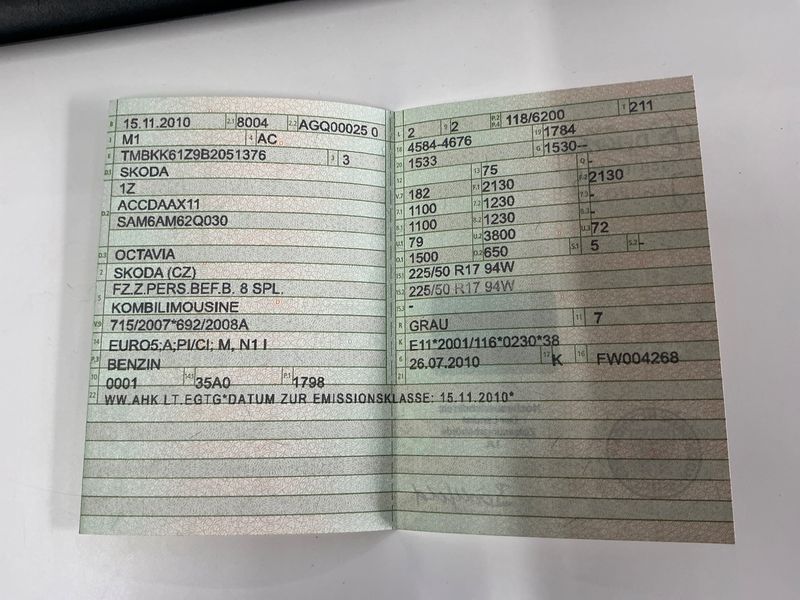 B 15.11.2010 2.1 8004 2.2 AGQ00025 0
J M1 4 AC
E TMBKK61Z9B2051376 3 3
D.1 SKODA
D.2 1Z
ACCDAAX11
SAM6AM62Q030
D.3 OCTAVIA
2 SKODA (CZ)
5 FZ.Z.PERS.BEF.B. 8 SPL.
KOMBILIMOUSINE
V.9 715/2007*692/2008A
14 EURO5;A;PI/CI; M, N1 I
P.3 BENZIN
10 0001 14.1 35A0 P.1 1798
22 WW.AHK LT.EGTG*DATUM ZUR EMISSIONSKLASSE: 15.11.2010*
L 2 9 2 P.2 P.4 118/6200 T 211
18 4584-4676 19 1784
20 1533 G 1530--
13 75 Q -
V.7 182 F.1 2130 F.2 2130
7.1 1100 7.2 1230 7.3 -
8.1 1100 8.2 1230 8.3 -
U.1 79 U.2 3800 U.3 72
O.1 1500 O.2 650 S.1 5 S.2 -
15.1 225/50 R17 94W
15.2 225/50 R17 94W
15.3 -
R GRAU 11 7
K E11*2001/116*0230*38
6 26.07.2010 17 K 16 FW004268
21